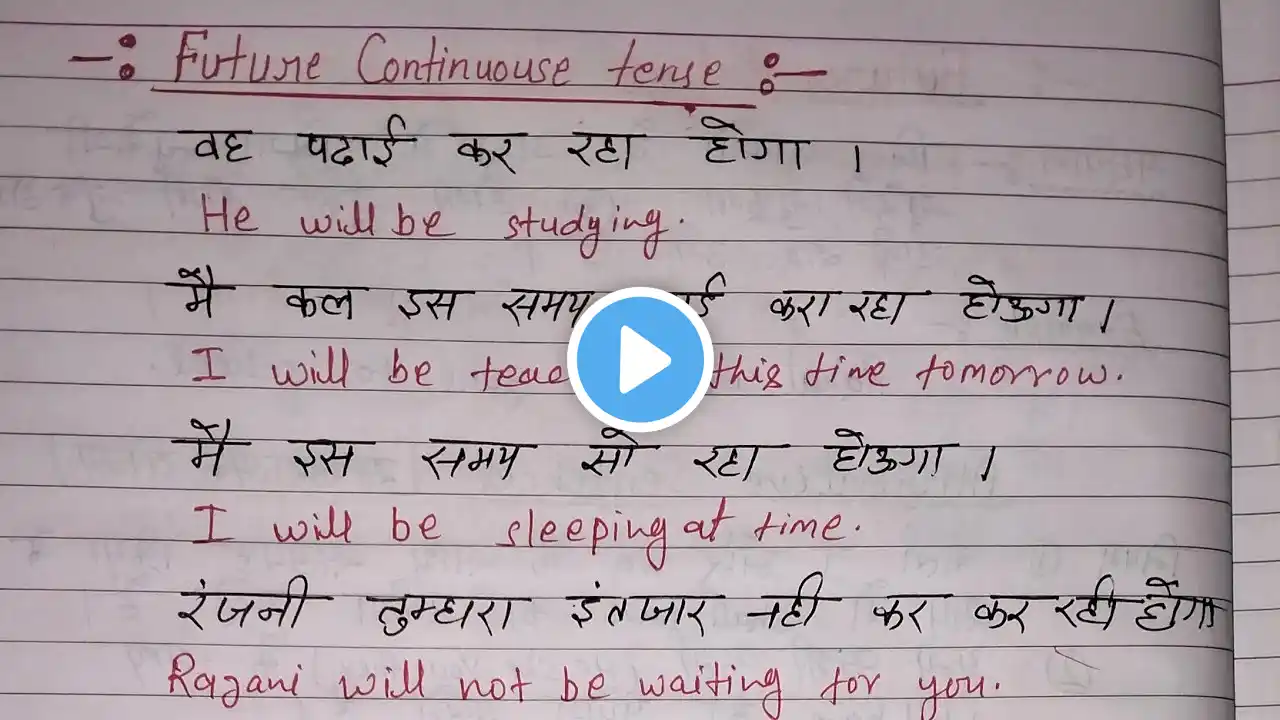 -: Future Continuouse tense :-
वह पढाई कर रहा होगा ।
He will be studying.
मै कल इस समय करा रहा होऊगा ।
I will be this time tomorrow.
मै इस समय सो रहा होऊगा ।
I will be sleeping at time.
रंजनी तुम्हारा इंतजार नही कर कर रही होगी
Rajani will not be waiting for you.